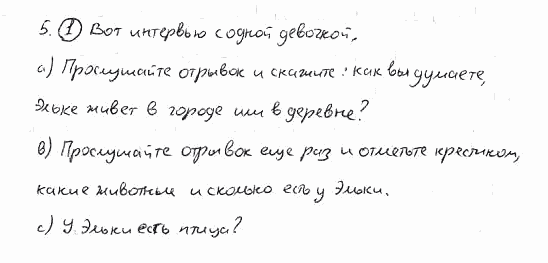 5. ① Вот интервью с одной девочкой.
а) Прослушайте отрывок и скажите: как вы думаете,
Эльке живет в городе или в деревне?
в) Прослушайте отрывок еще раз и отметьте крестиком,
какие животные и сколько есть у Эльки.
с) У Эльки есть птица?